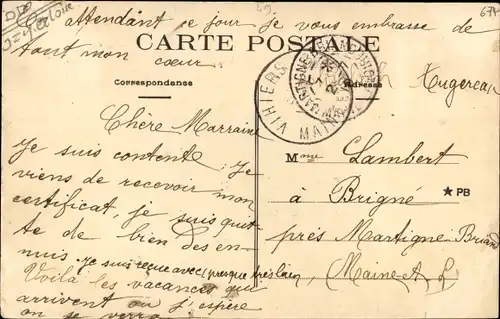 En attendant ce jour je vous embrasse de
tout mon coeur
CARTE POSTALE
Correspondance
Adresse
Chère Marraine
Je suis contente. Je
viens de recevoir mon
certificat, je suis quit-
te de bien des en-
nuis. Je suis reçue avec (presque très bien)
Voilà les vacances qui
arrivent on j'espère
on se verra
VIHIERS
MAINE
Mme Lambert
à Brigné
★ PB
près Martigné-Briand
Maine-&-L